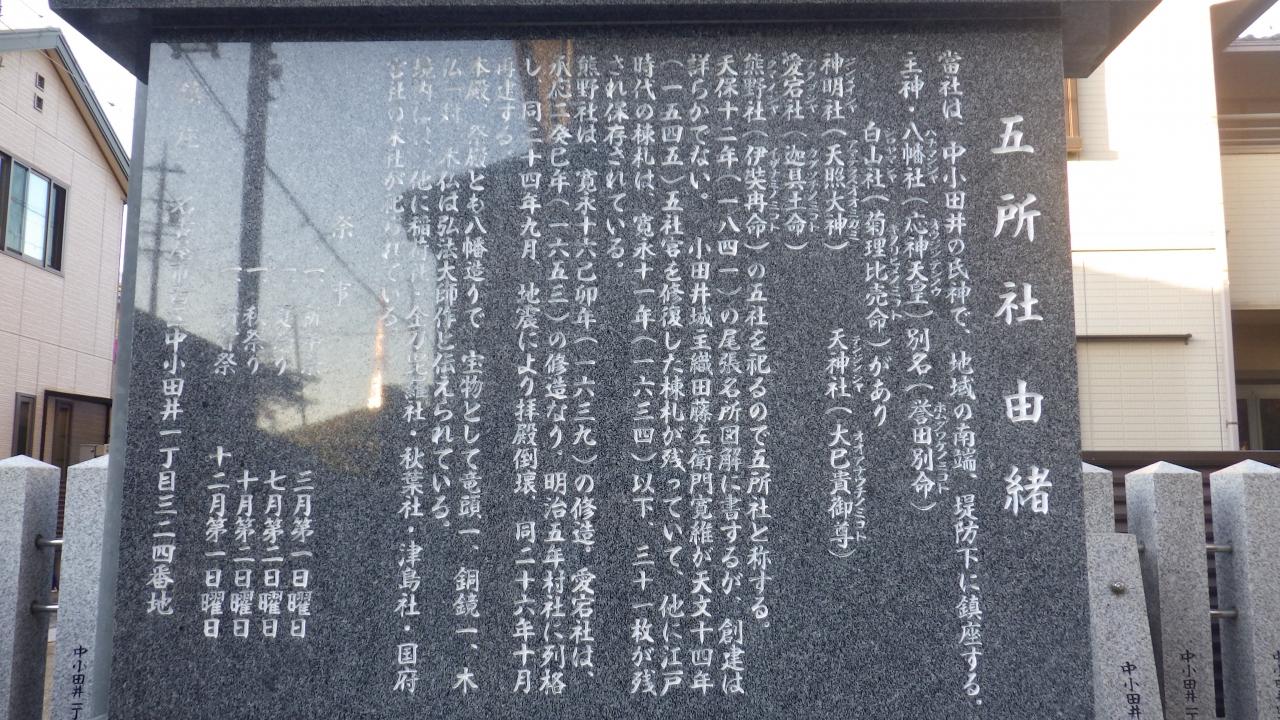 五所社由緒
當社は、中小田井の氏神で、地域の南端、堤防下に鎮座する。
主神・八幡社（応神天皇）別名（誉田別命）
ハチマンシャ
オウジンテンノウ
ホンダワケノミコト
白山社（菊理比売命）があり
神明社（天照大神）
天神社（大巳貴御尊）
シンメイシャ
テンジンシャ
愛宕社（迦具土命）
熊野社（伊奘冉命）の五社を祀るので五所社と称する。
天保十二年（一八四一）の尾張名所図解に書するが、創建は
詳らかでない。 小田井城主織田藤左衛門寛維が天文十四年
（一五四五）五社宮を修復した棟札が残っていて、他に江戸
時代の棟札は、寛永十一年（一六三四）以下、三十一枚が残
され保存されている。
熊野社は、寛永十六己卯年（一六三九）の修造。愛宕社は、
承応二癸巳年（一六五三）の修造なり。明治五年村社に列格
し、同二十四年九月、地震により拝殿倒壊、同二十六年十月
再建する
本殿、祭殿とも八幡造りで、宝物として竜頭一、銅鏡一、木
仏一対、木仏は弘法大師作と伝えられている。
境内には、他に稲荷社・金刀比羅社・秋葉社・津島社・国府
宮社の末社が祀られている。
祭事
一 三月第一日曜日
一 七月第二日曜日
一 秋祭り 十月第二日曜日
祭 十二月第一日曜日
中小田井一丁目三二四番地
中小田井一丁
中小田井
中小田井一